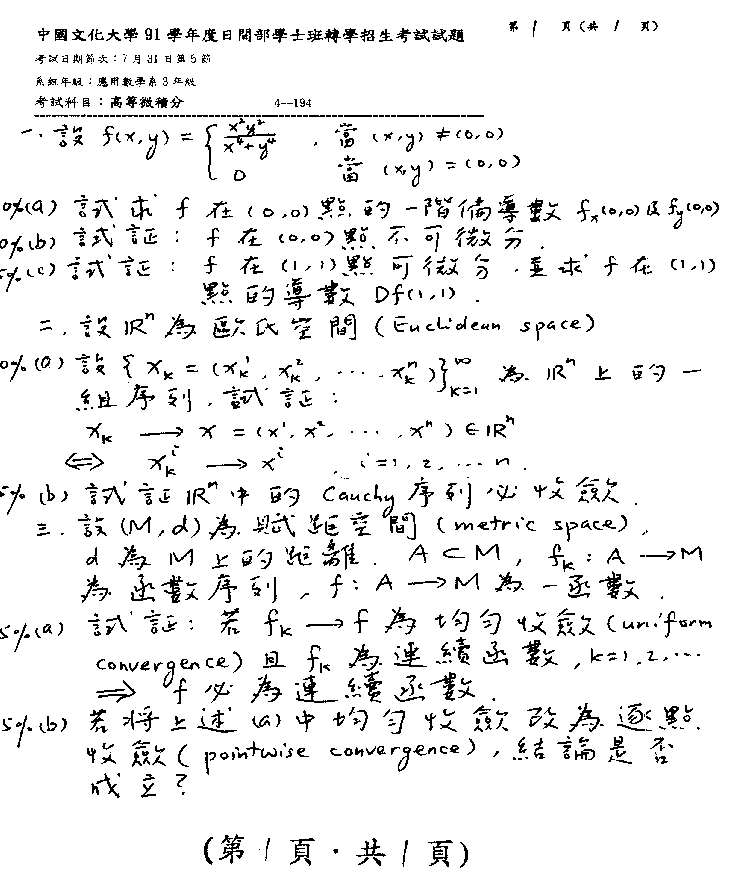 中國文化大學91學年度日間部學士班轉學招生考試試題 第 1 頁(共 1 頁)
考試日期節次:7月31日第5節
系組年級:應用數學系3年級
考試科目:高等微積分 4--194
一. 設 f(x,y) = { x²y²/(x⁴+y⁴) , 當 (x,y) ≠ (0,0)
0 當 (x,y) = (0,0)
0%(a) 試求 f 在 (0,0) 點的一階偏導數 fₓ(0,0) 及 f_y(0,0)
0%(b) 試証: f 在 (0,0) 點不可微分.
5%(c) 試証: f 在 (1,1) 點可微分. 並求 f 在 (1,1)
點的導數 Df(1,1).
二. 設 ℝⁿ 為歐氏空間 (Euclidean space)
0%(a) 設 { x_k = (x_k¹, x_k², ..., x_kⁿ)}_{k=1}^∞ 為 ℝⁿ 上的一
組序列, 試証:
x_k → x = (x¹, x², ..., xⁿ) ∈ ℝⁿ
⇔ x_kⁱ → xⁱ , i=1, 2, ... n.
5%(b) 試証 ℝⁿ 中的 Cauchy 序列必收斂.
三. 設 (M, d) 為賦距空間 (metric space),
d 為 M 上的距離. A ⊂ M, f_k : A → M
為函數序列, f : A → M 為一函數.
5%(a) 試証: 若 f_k → f 為均勻收斂 (uniform
convergence) 且 f_k 為連續函數, k=1, 2, ...
⇒ f 必為連續函數.
5%(b) 若將上述 (a) 中均勻收斂改為逐點
收斂 (pointwise convergence), 結論是否
成立?
(第 1 頁・共 1 頁)